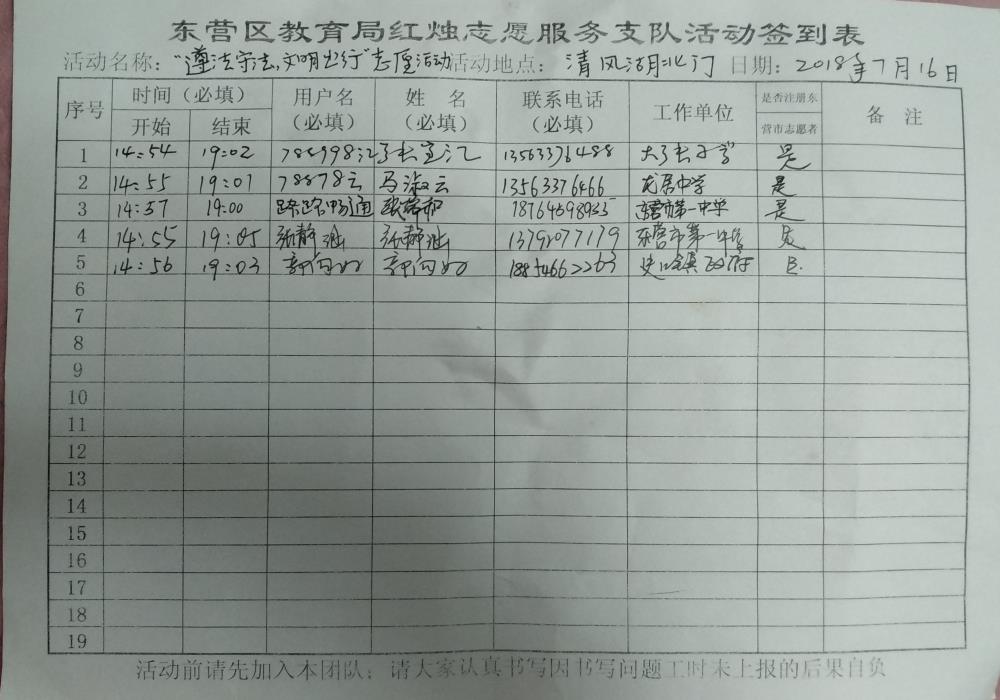 东营区教育局红烛志愿服务支队活动签到表
活动名称："遵法守法,文明出行"志愿活动 活动地点：清风湖北门 日期：2018年7月16日
序号 时间（必填） 用户名（必填） 姓 名（必填） 联系电话（必填） 工作单位 是否注册东营市志愿者 备 注
开始 结束
1 14:54 19:02 13563376488 是
2 14:55 19:01 78878云 马淑云 13563376466 龙居中学 是
3 14:57 19:00 路路畅通 东营市第一中学 是
4 14:55 19:05 13792077179 东营市第一中学 是
5 14:56 19:03 18854662263 史口镇政府 是
6
7
8
9
10
11
12
13
14
15
16
17
18
19
活动前请先加入本团队；请大家认真书写因书写问题工时未上报的后果自负